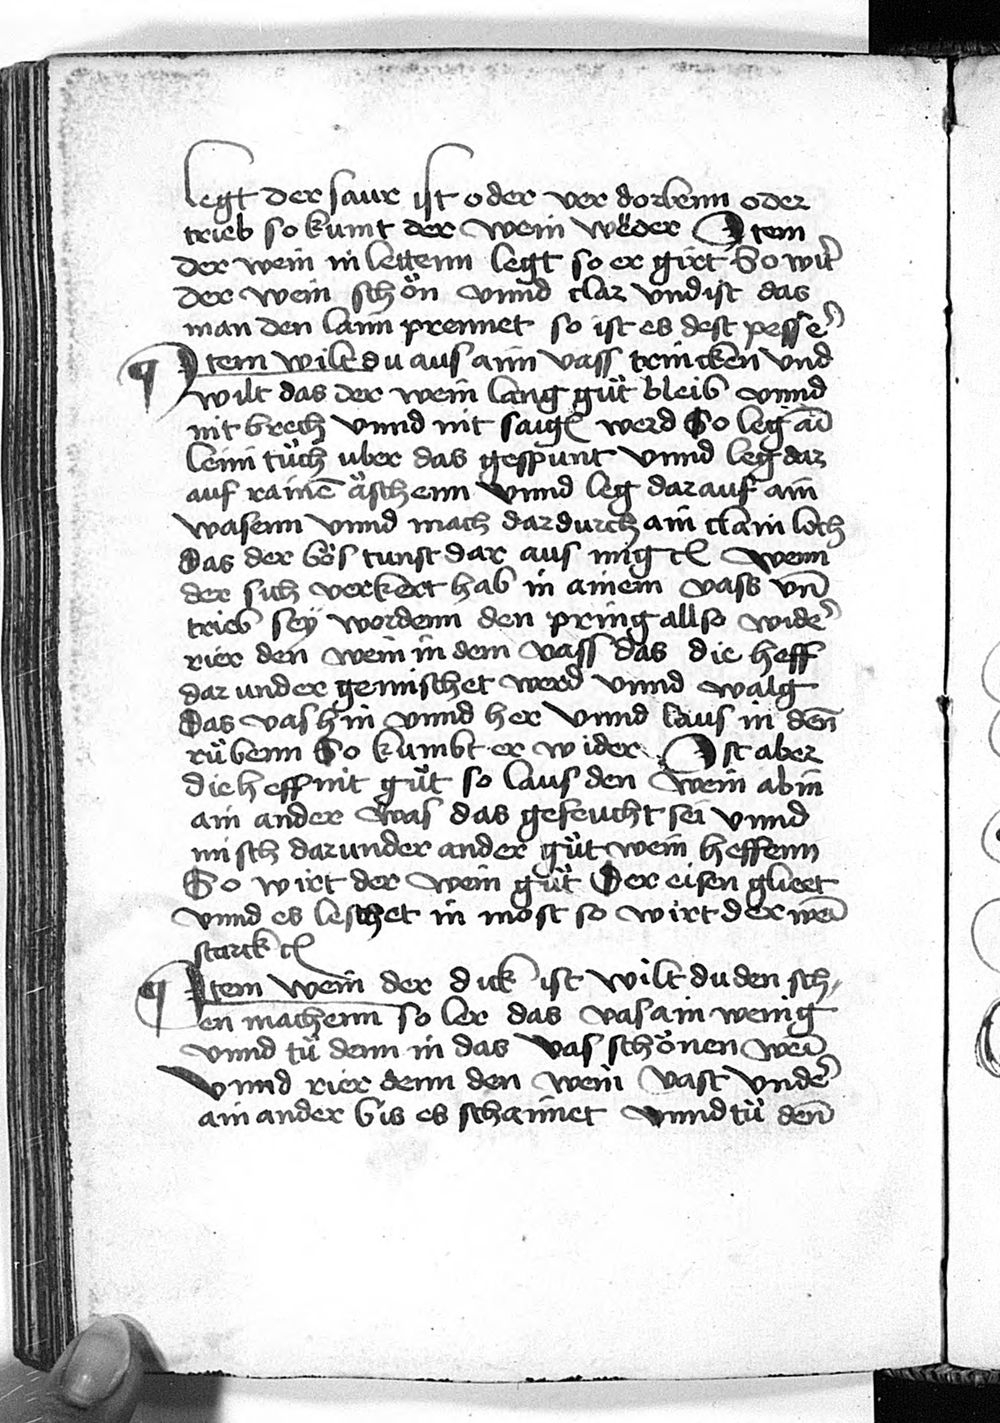 legt der saur ist oder ver dorbenn oder
trieb so kumt der wein wëder Item
der wein in lettenn legt so er girt So wir̉
der wein schön vnnd clar vnd ist das
man den lann prennet so ist es dest pesse᷑
¶ Item wilt du aus ainn vass trincken vnd
wilt das der wein lang gu̎t bleib vnnd
nit brech vnnd nit saig werd So leg ain̄
leini tu̎ch uber das gespunt vnnd leg dar
auf rainē äschenn vnnd leg dar auf ain
wasenn vnnd mach dar durch ain clain loch
Das der bös tunst dar aus mig wenn
der sich verkert hab in ainem vass vn̄
trieb seÿ wordenn den pring allso wide᷑
rier den wein in dem vass das die heff
dar under gemischet werd vnnd walg
Das vas hin vnnd her vnnd laus in den̄
ru̎benn So kumbt er wider Ist aber
die heff nit gu̎t so laus den wein ab in
ain ander vas das gefeucht sei vnnd
misch dar under ander gu̎t wein heffenn
So wirt der wein gu̎t Der eisen glieet
vnnd es leschet in most so wirt der wei̅
starck
¶ Item wein der dick ist wilt du den sch,
en machenn so ler das vas ain wenig
vnnd tu̎ denn in das vas schönen wei̅
Vnnd rier denn den wein vast vnde᷑
ain ander bis es schaimet vnnd tu̎ den̄